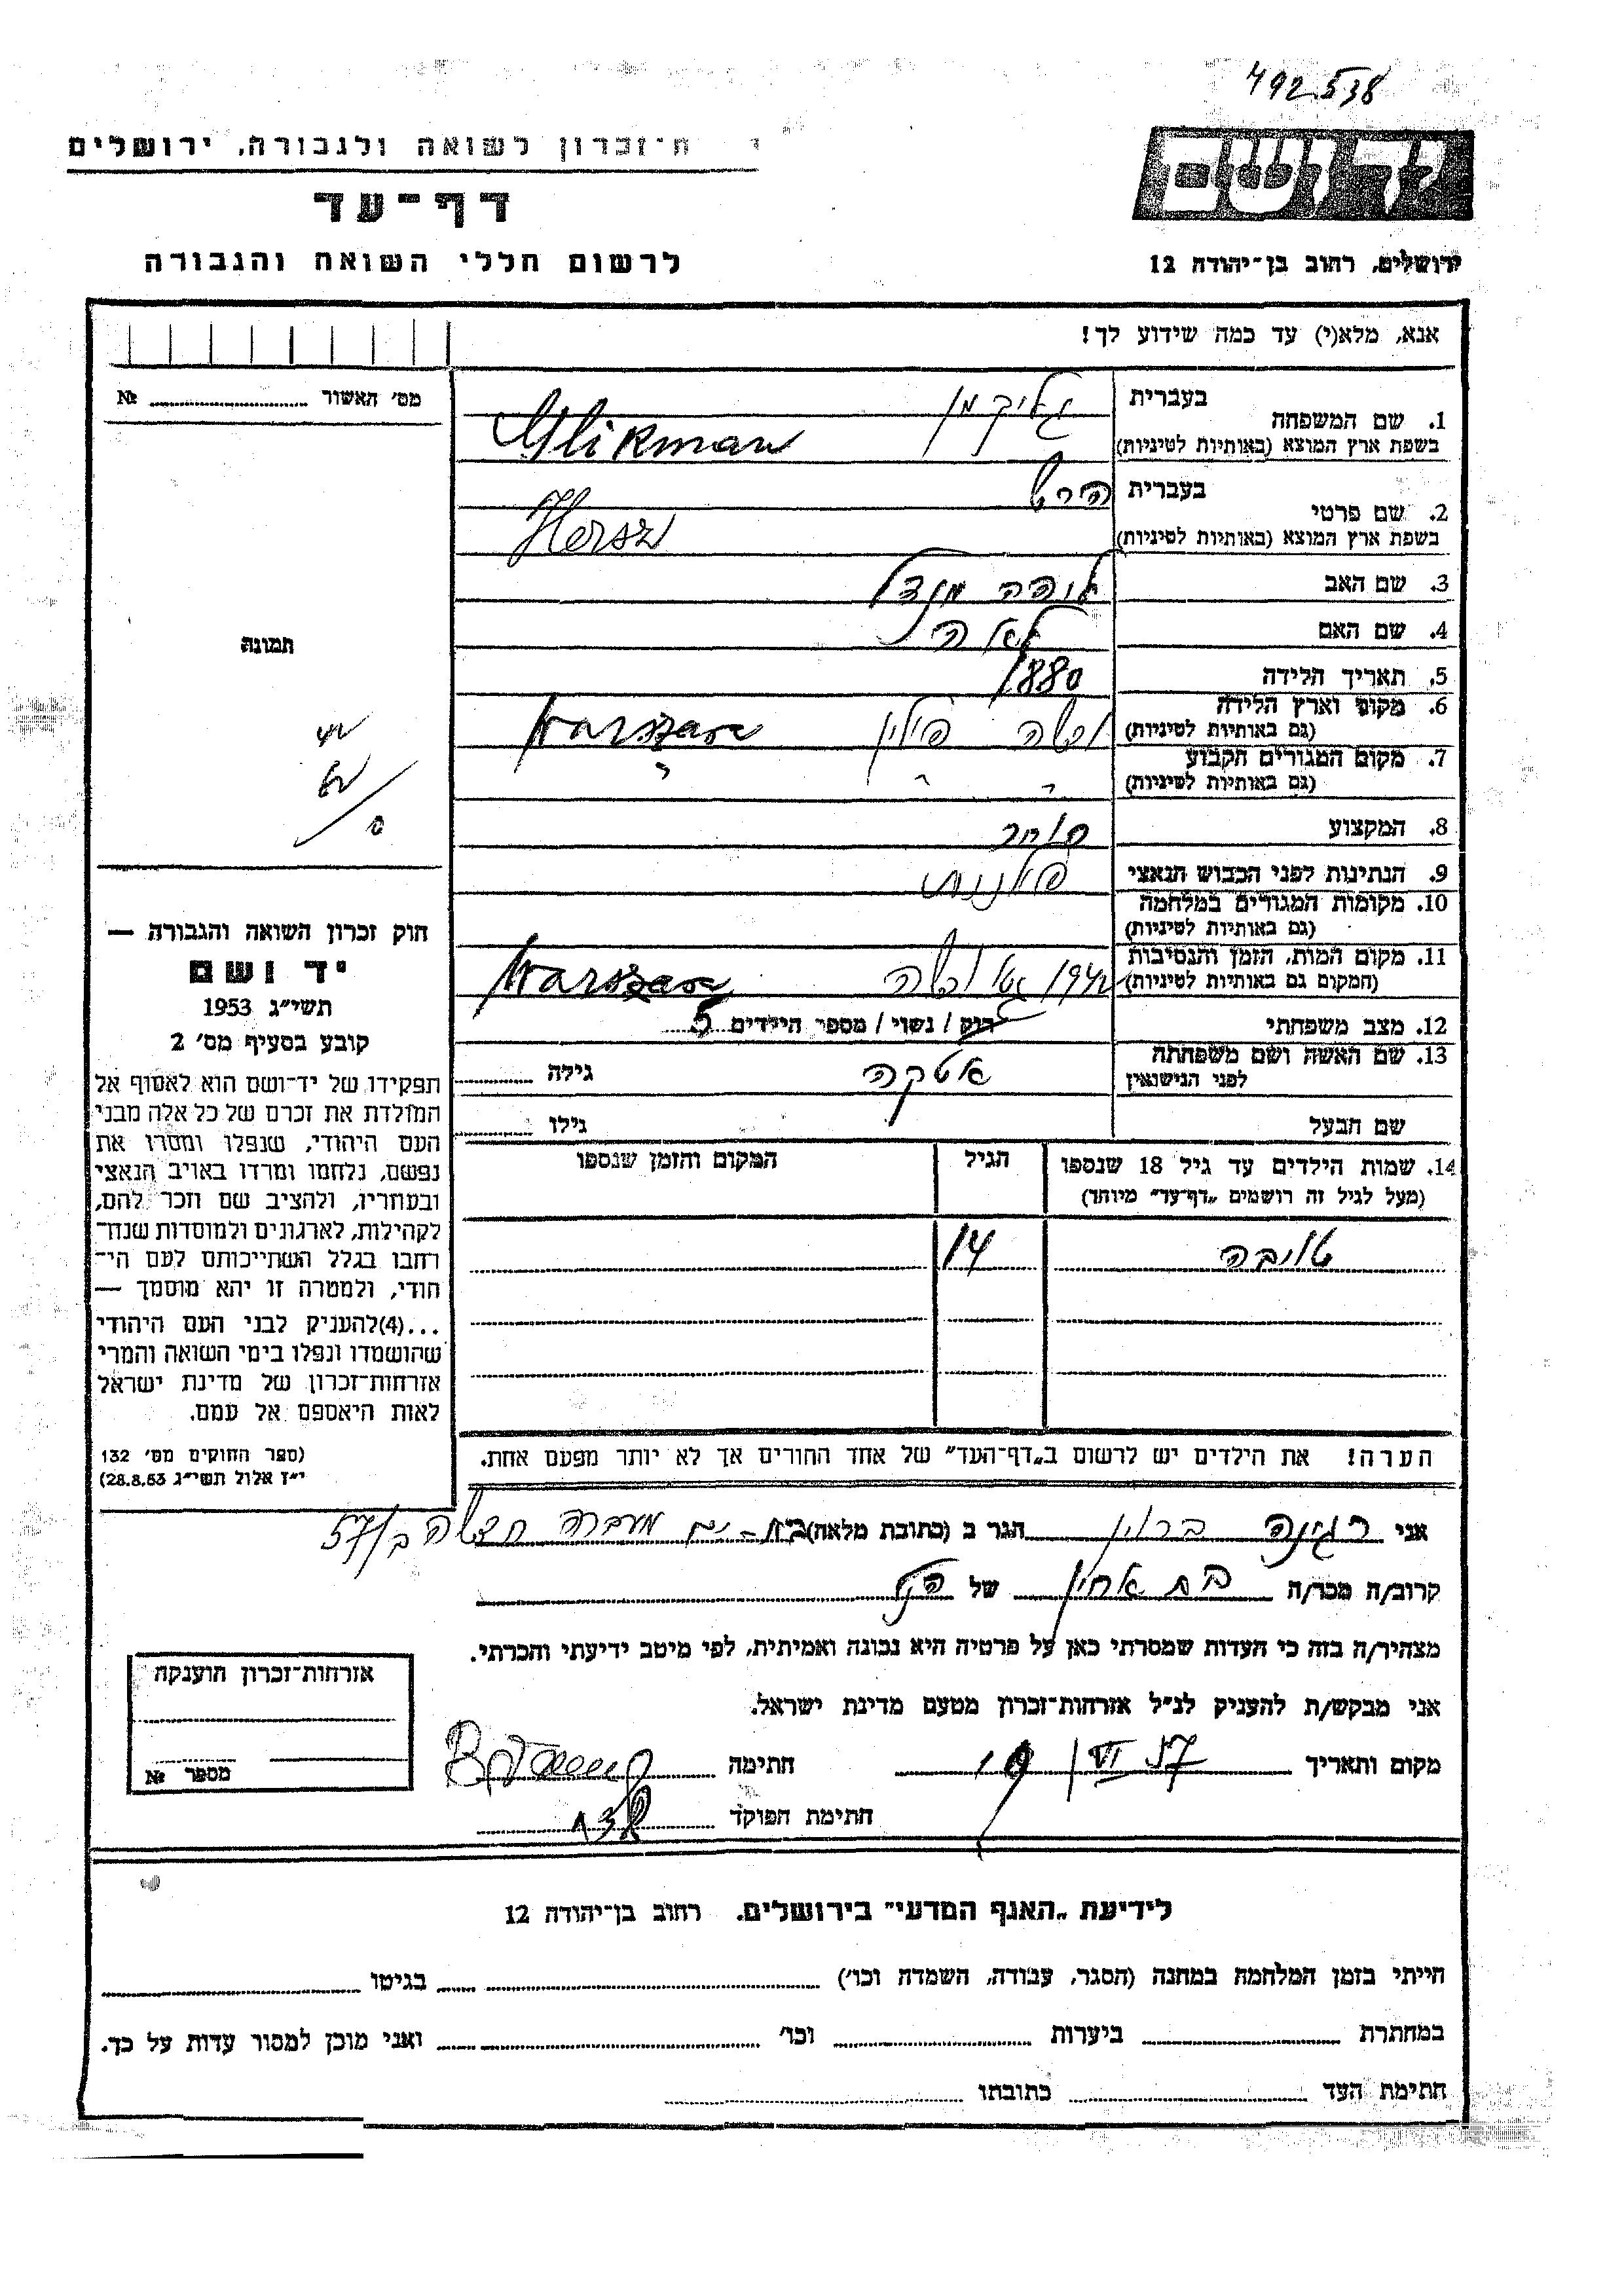 492538
ח־זכרון לשואה ולגבורה, ירושלים
דף־עד
לרשום חללי השואה והגבורה
יד ושם
ירושלים, רחוב בן־יהודה 12
אנא, מלא(י) עד כמה שידוע לך!
מס' האשור № 
תמונה
חוק זכרון השואה והגבורה —
יד ושם
תשי״ג 1953
קובע בסעיף מס' 2
תפקידו של יד־ושם הוא לאסוף אל
המולדת את זכרם של כל אלה מבני
העם היהודי, שנפלו ומסרו את
נפשם, נלחמו ומרדו באויב הנאצי
ובעוזריו, ולהציב שם וזכר להם,
לקהילות, לארגונים ולמוסדות שנח־
רחבו בגלל השתייכותם לעם הי־
הודי, ולמטרה זו יהא מוסמך —
...(4)להעניק לבני העם היהודי
שהושמדו ונפלו בימי השואה והמרי
אזרחות־זכרון של מדינת ישראל
לאות היאספם אל עמם.
(ספר החוקים מס' 132
י״ז אלול תשי״ג 28.8.53)
1. שם המשפחה בעברית גליקמן
בשפת ארץ המוצא (באותיות לטיניות) Glikman
2. שם פרטי בעברית הירש
בשפת ארץ המוצא (באותיות לטיניות) Hersz
3. שם האב יהודה מנדל
4. שם האם לאה
5. תאריך הלידה 1880
6. מקום וארץ הלידה (גם באותיות לטיניות) ורשה פולין Warszawa
7. מקום המגורים הקבוע (גם באותיות לטיניות) " " "
8. המקצוע סוחר
9. הנתינות לפני הכבוש הנאצי פולנית
10. מקומות המגורים במלחמה (גם באותיות לטיניות)
11. מקום המות, הזמן והנסיבות (המקום גם באותיות לטיניות) 1942 גטו ורשה Warszawa
12. מצב משפחתי רוק / נשוי / מספר הילדים 5
13. שם האשה ושם משפחתה לפני הנישואין אטקה גילה
שם הבעל גילו
14. שמות הילדים עד גיל 18 שנספו (מעל לגיל זה רושמים „דף־עד״ מיוחד) הגיל המקום והזמן שנספו
טויבה 14
הערה! את הילדים יש לרשום ב„דף־העד״ של אחד ההורים אך לא יותר מפעם אחת.
אני רגינה ברוין הגר ב (כתובת מלאה) בת-ים מעברה חדשה ב/57
קרוב/ה מכר/ה בת אחין של הנ״ל
מצהיר/ה בזה כי העדות שמסרתי כאן על פרטיה היא נכונה ואמיתית, לפי מיטב ידיעתי והכרתי.
אני מבקש/ת להעניק לנ״ל אזרחות־זכרון מטעם מדינת ישראל.
מקום ותאריך 19/VI 57 חתימה
חתימת הפוקד
אזרחות־זכרון הוענקה
מספר №
לידיעת „האגף המדעי״ בירושלים. רחוב בן־יהודה 12
הייתי בזמן המלחמה במחנה (הסגר, עבודה, השמדה וכו') בגיטו
במחתרת ביערות וכו' ואני מוכן למסור עדות על כך.
חתימת העד כתובתו